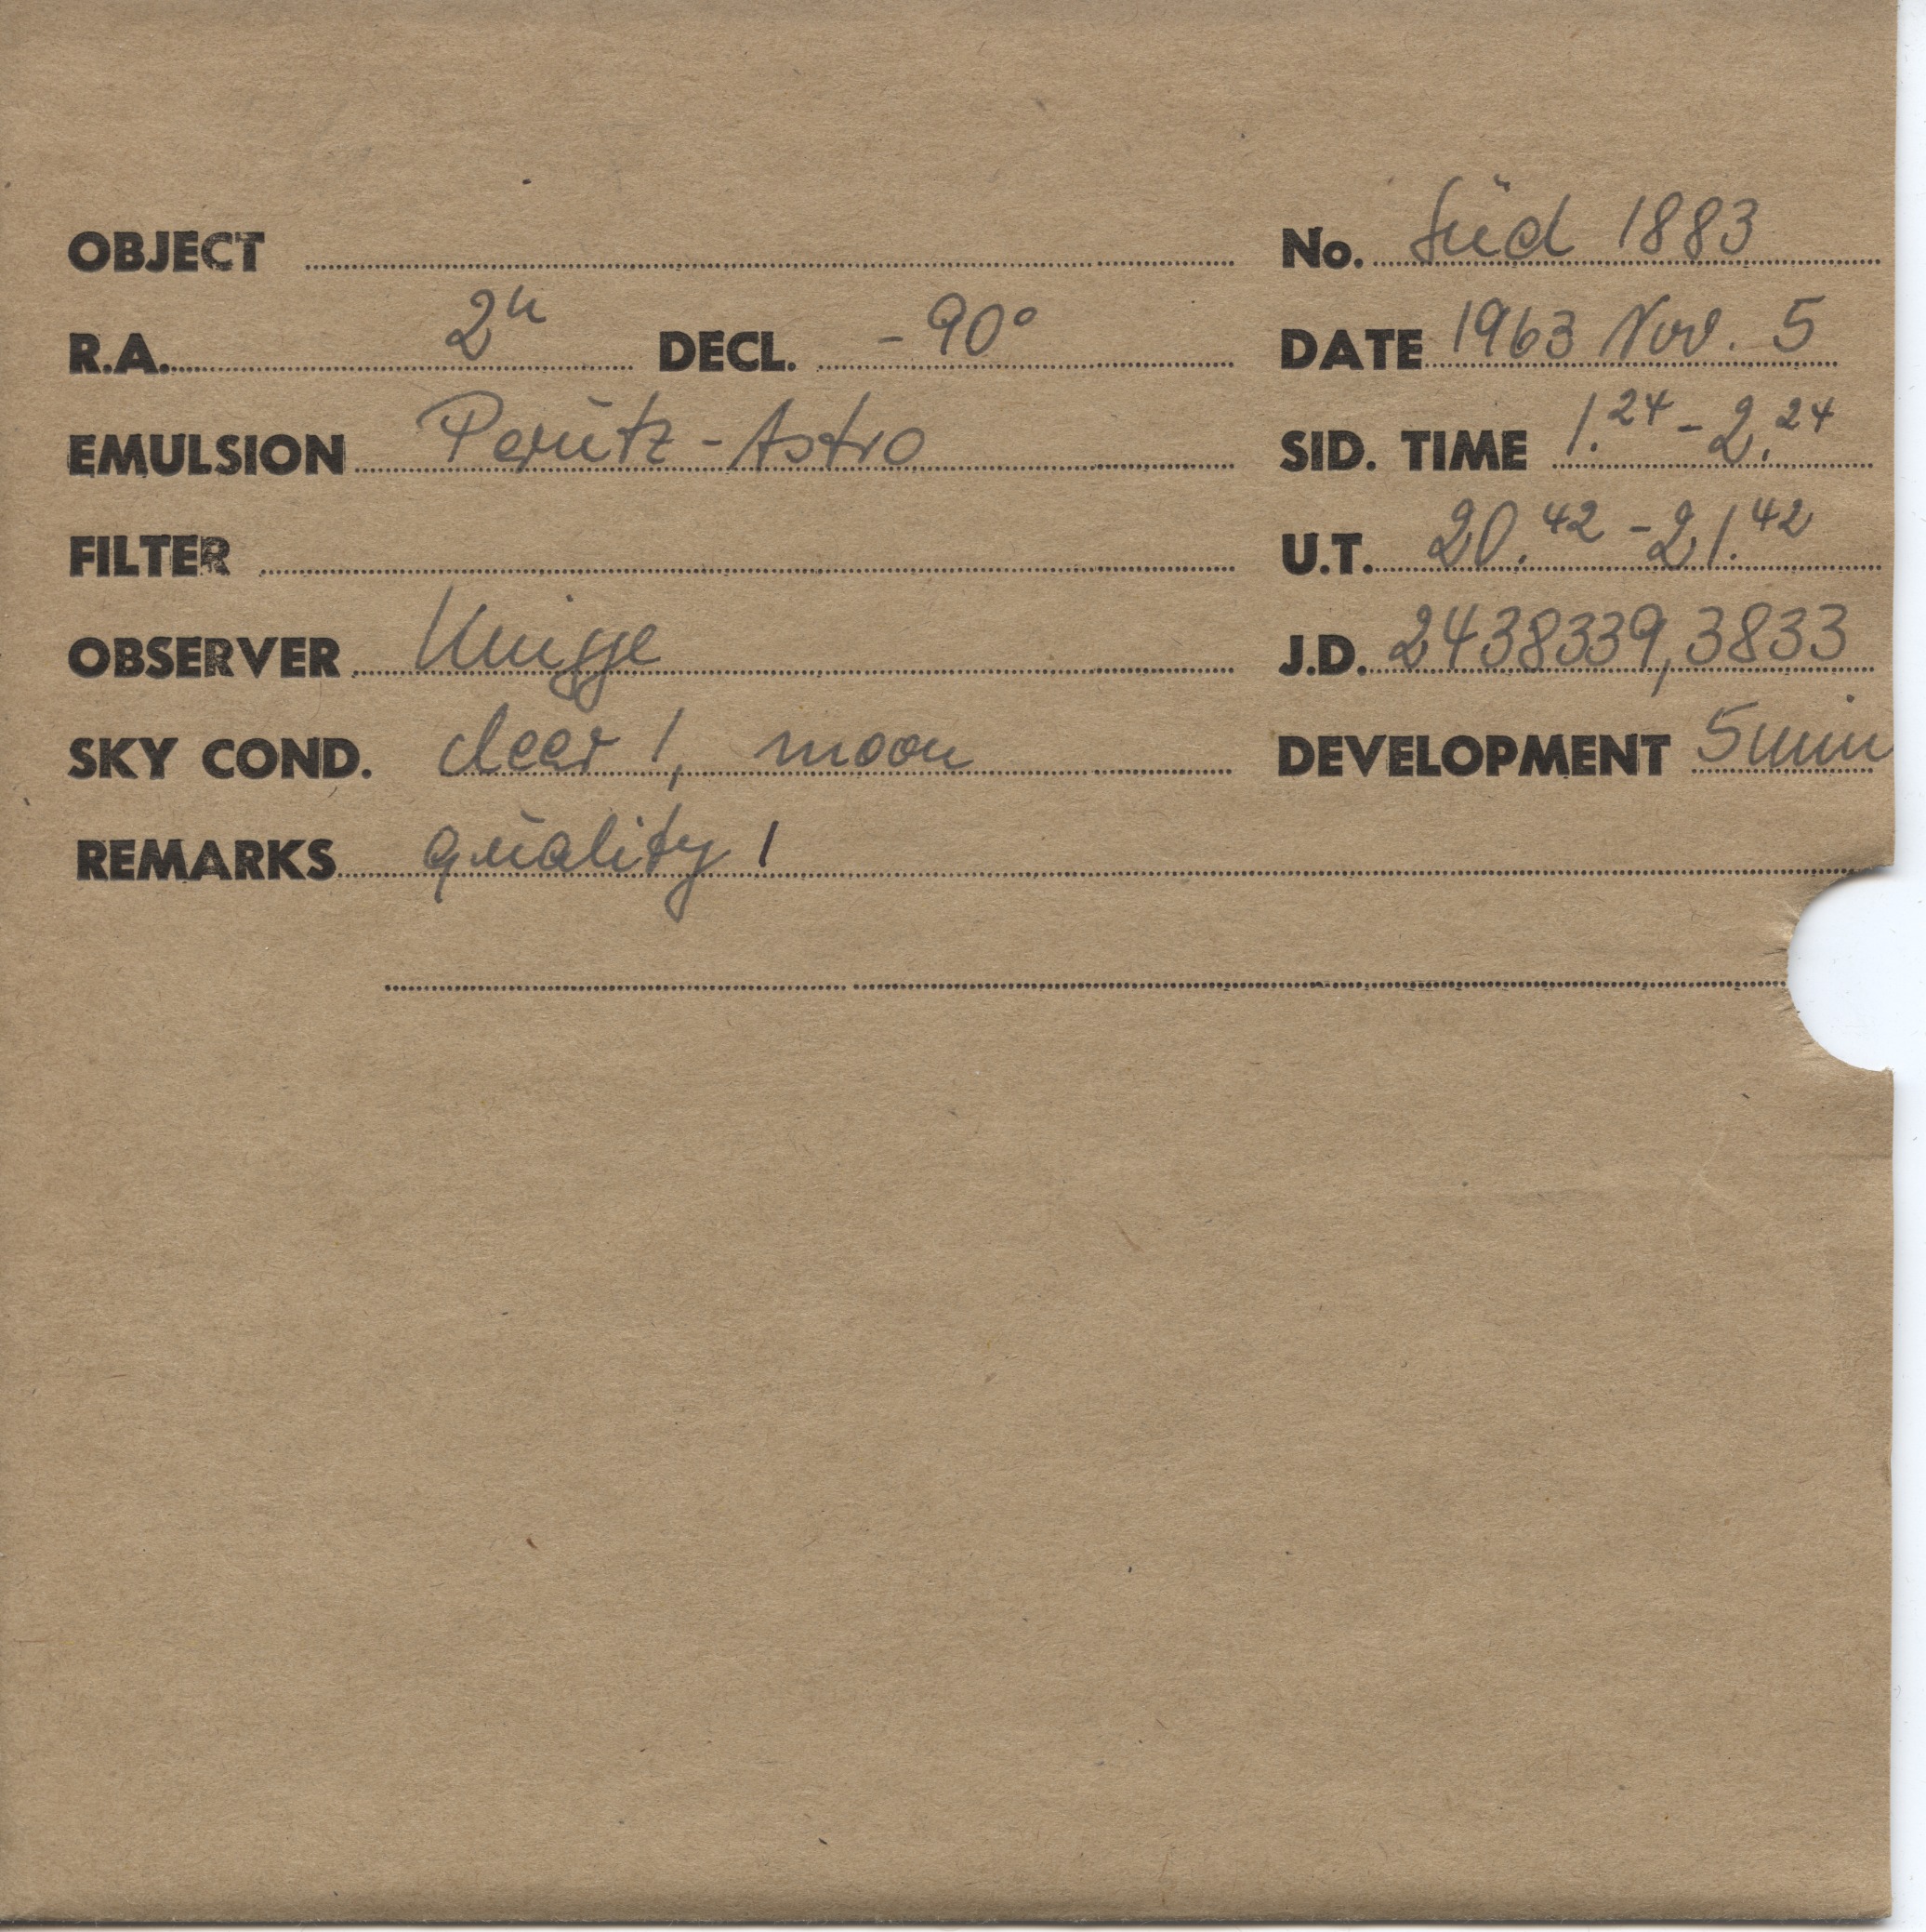 OBJECT No. Süd 1883
R.A. 2h DECL. -90° DATE 1963 Nov. 5
EMULSION Perutz-Astro SID. TIME 1.24-2.24
FILTER U.T. 20.42-21.42
OBSERVER Knigge J.D. 2438339,3833
SKY COND. clear!, moon DEVELOPMENT 5min
REMARKS quality!